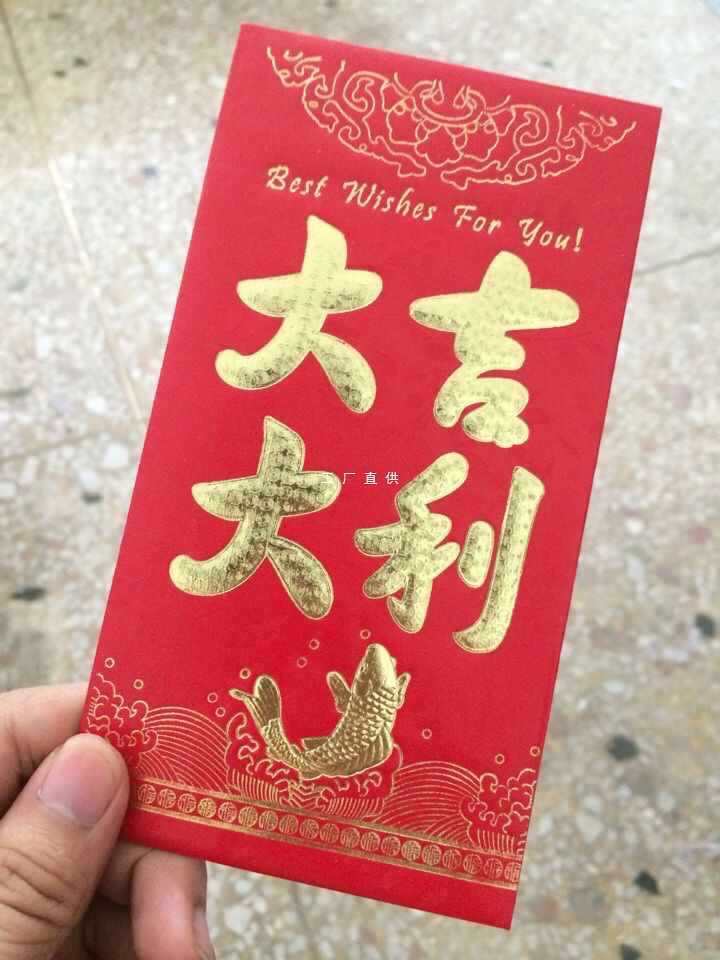 Best Wishes For You!
大吉
大利
厂直供